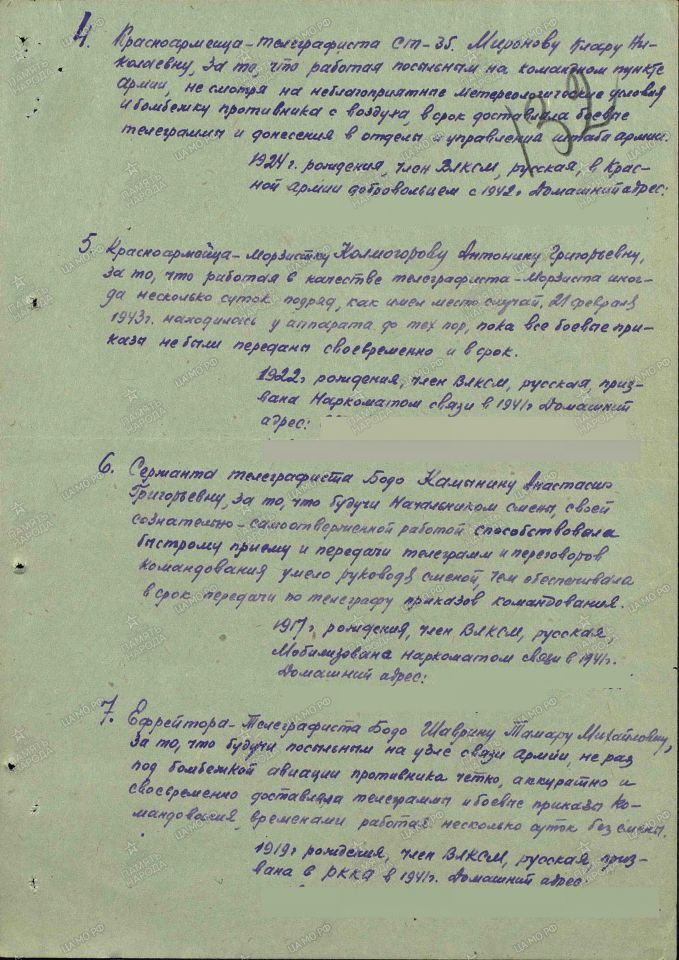 132
4. Красноармейца-телеграфиста СТ-35. Миронову Клару Ни-
колаевну, За то, что работая посыльным на командном пункте
армии, не смотря на неблагоприятные метереологические условия
и бомбежку противника с воздуха, в срок доставляла боевые
телеграммы и донесения в отделы и управления штаба армии.
1924 г. рождения, член ВЛКСМ, русская, в Крас-
ной армии добровольцем с 1942 г Домашний адрес:
5. Красноармейца-Морзистку Колмогорову Антонину Григорьевну,
за то, что работая в качестве телеграфиста-Морзиста иног-
да несколько суток подряд, как имел место случай, 21 февраля
1943г. находилась у аппарата до тех пор, пока все боевые при-
каза не были переданы своевременно и в срок.
1922 г рождения, член ВЛКСМ, русская, приз-
вана Наркоматом связи в 1941г Домашний
адрес:
6. Сержанта телеграфиста Бодо Камынину Анастасию
Григорьевну, за то, что будучи Начальником смены, своей
сознательно-самоотверженной работой способствовала
быстрому приему и передачи телеграмм и переговоров
командования умело руководя сменой, чем обеспечивала
в срок передачи по телеграфу приказов командования.
1917г рождения, член ВЛКСМ, русская,
Мобилизована Наркоматом связи в 1941г.
Домашний адрес:
7. Ефрейтора-Телеграфиста Бодо Шаврину Тамару Михайловну,
За то, что будучи посыльным на узле связи армии, не раз
под бомбежкой авиации противника четко, аккуратно и
своевременно доставляла телеграммы и боевые приказа ко-
мандования, временами работая несколько суток без смены.
1919г рождения, член ВЛКСМ, русская, приз-
вана в РККА в 1941г. Домашний адрес: